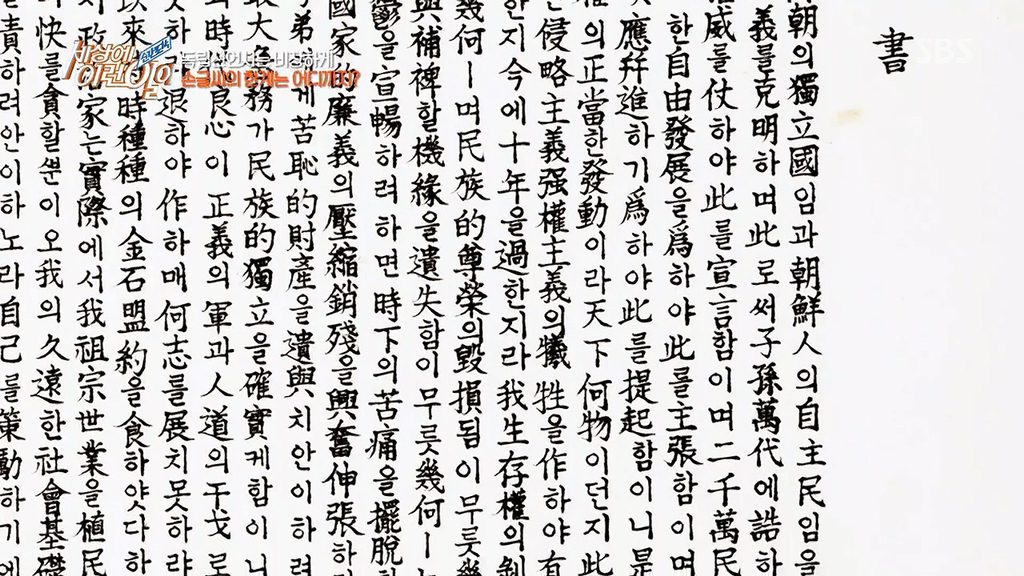 순간포착
세상에
이런일이
독립선언서는 비장하게
손글씨의 한계는 어디까지?
SBS
書
朝의獨立國임과朝鮮人의自主民임을
義를克明하며此로써子孫萬代에誥하
威를仗하야此를宣言함이며二千萬民
한自由發展을爲하야此를主張함이며
應幷進하기爲하야此를提起함이니是
의正當한發動이라天下何物이던지此
侵略主義强權主義의犧牲을作하야有
한지今에十年을過한지라我生存權의剝
幾何ㅣ며民族的尊榮의毁損됨이무릇幾
與補裨할機緣을遺失함이무릇幾何ㅣ
鬱을宣暢하려하면時下의苦痛을擺脫
國家的廉義의壓縮銷殘을興奮伸張하
弟에게苦恥的財産을遺與치안이하려
最大急務가民族的獨立을確實케함이니
時良心이正義의軍과人道의干戈로
하랴退하야作하매何志를展치못하랴
以來時種種의金石盟約을食하얏다하
政治家는實際에서我祖宗世業을植民
快를貪할뿐이오我의久遠한社會基礎
責하려안이하노라自己를策動하기에